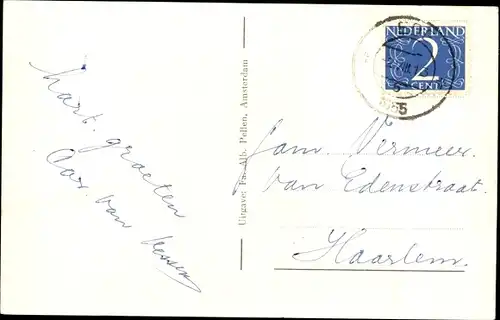 Hart. groeten
Cor van
Uitgave: Fa. Alb. Pelten, Amsterdam
NEDERLAND
2
CENT
1955
Fam. Vermeer.
van Edenstraat.
Haarlem.